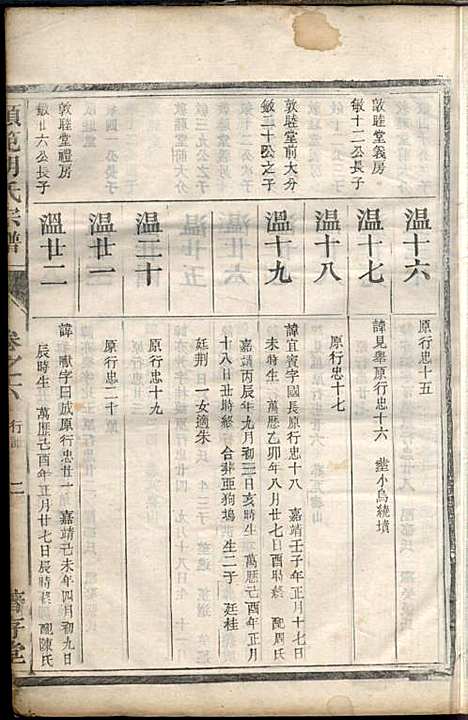 温十六
原行忠十五
敦睦堂義房
敏十二公長子
温十七
諱見舉原行忠十六 塟小烏繞墳
温十八
原行忠十七
敦睦堂前大分
敏二十公之子
温十九
諱宜賓字國長原行忠十八 嘉靖壬子年正月十七日
未時生 萬歷乙卯年八月廿七日酉時終 配周氏
嘉靖丙辰年九月初三日亥時生 萬歷己酉年正月
十八日丑時終 合葬亞狗塢 生二子 廷桂
廷荆 一女適朱
温二十
原行忠十九
温廿一
原行忠二十
敦睦堂禮房
敏廿六公長子
温廿二
諱一猷字曰誠原行忠廿一 嘉靖己未年四月初九日
辰時生 萬歷己酉年正月廿七日辰時終 配陳氏
胡氏宗譜
卷之六
行
二